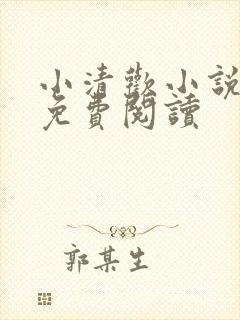 小清歡小說
免費閱讀
郭某生